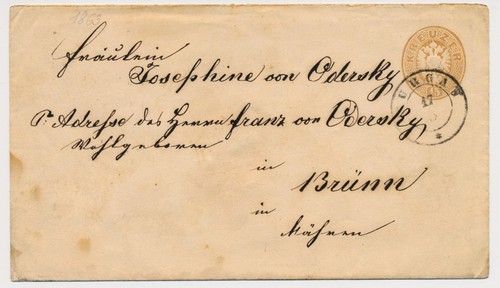 1863
KREUZER
Fräulein
Josephine von Odersky
Pr: Adresse des Herrn Franz von Odersky
Wohlgeboren
in
Brünn
in
Mähren
17